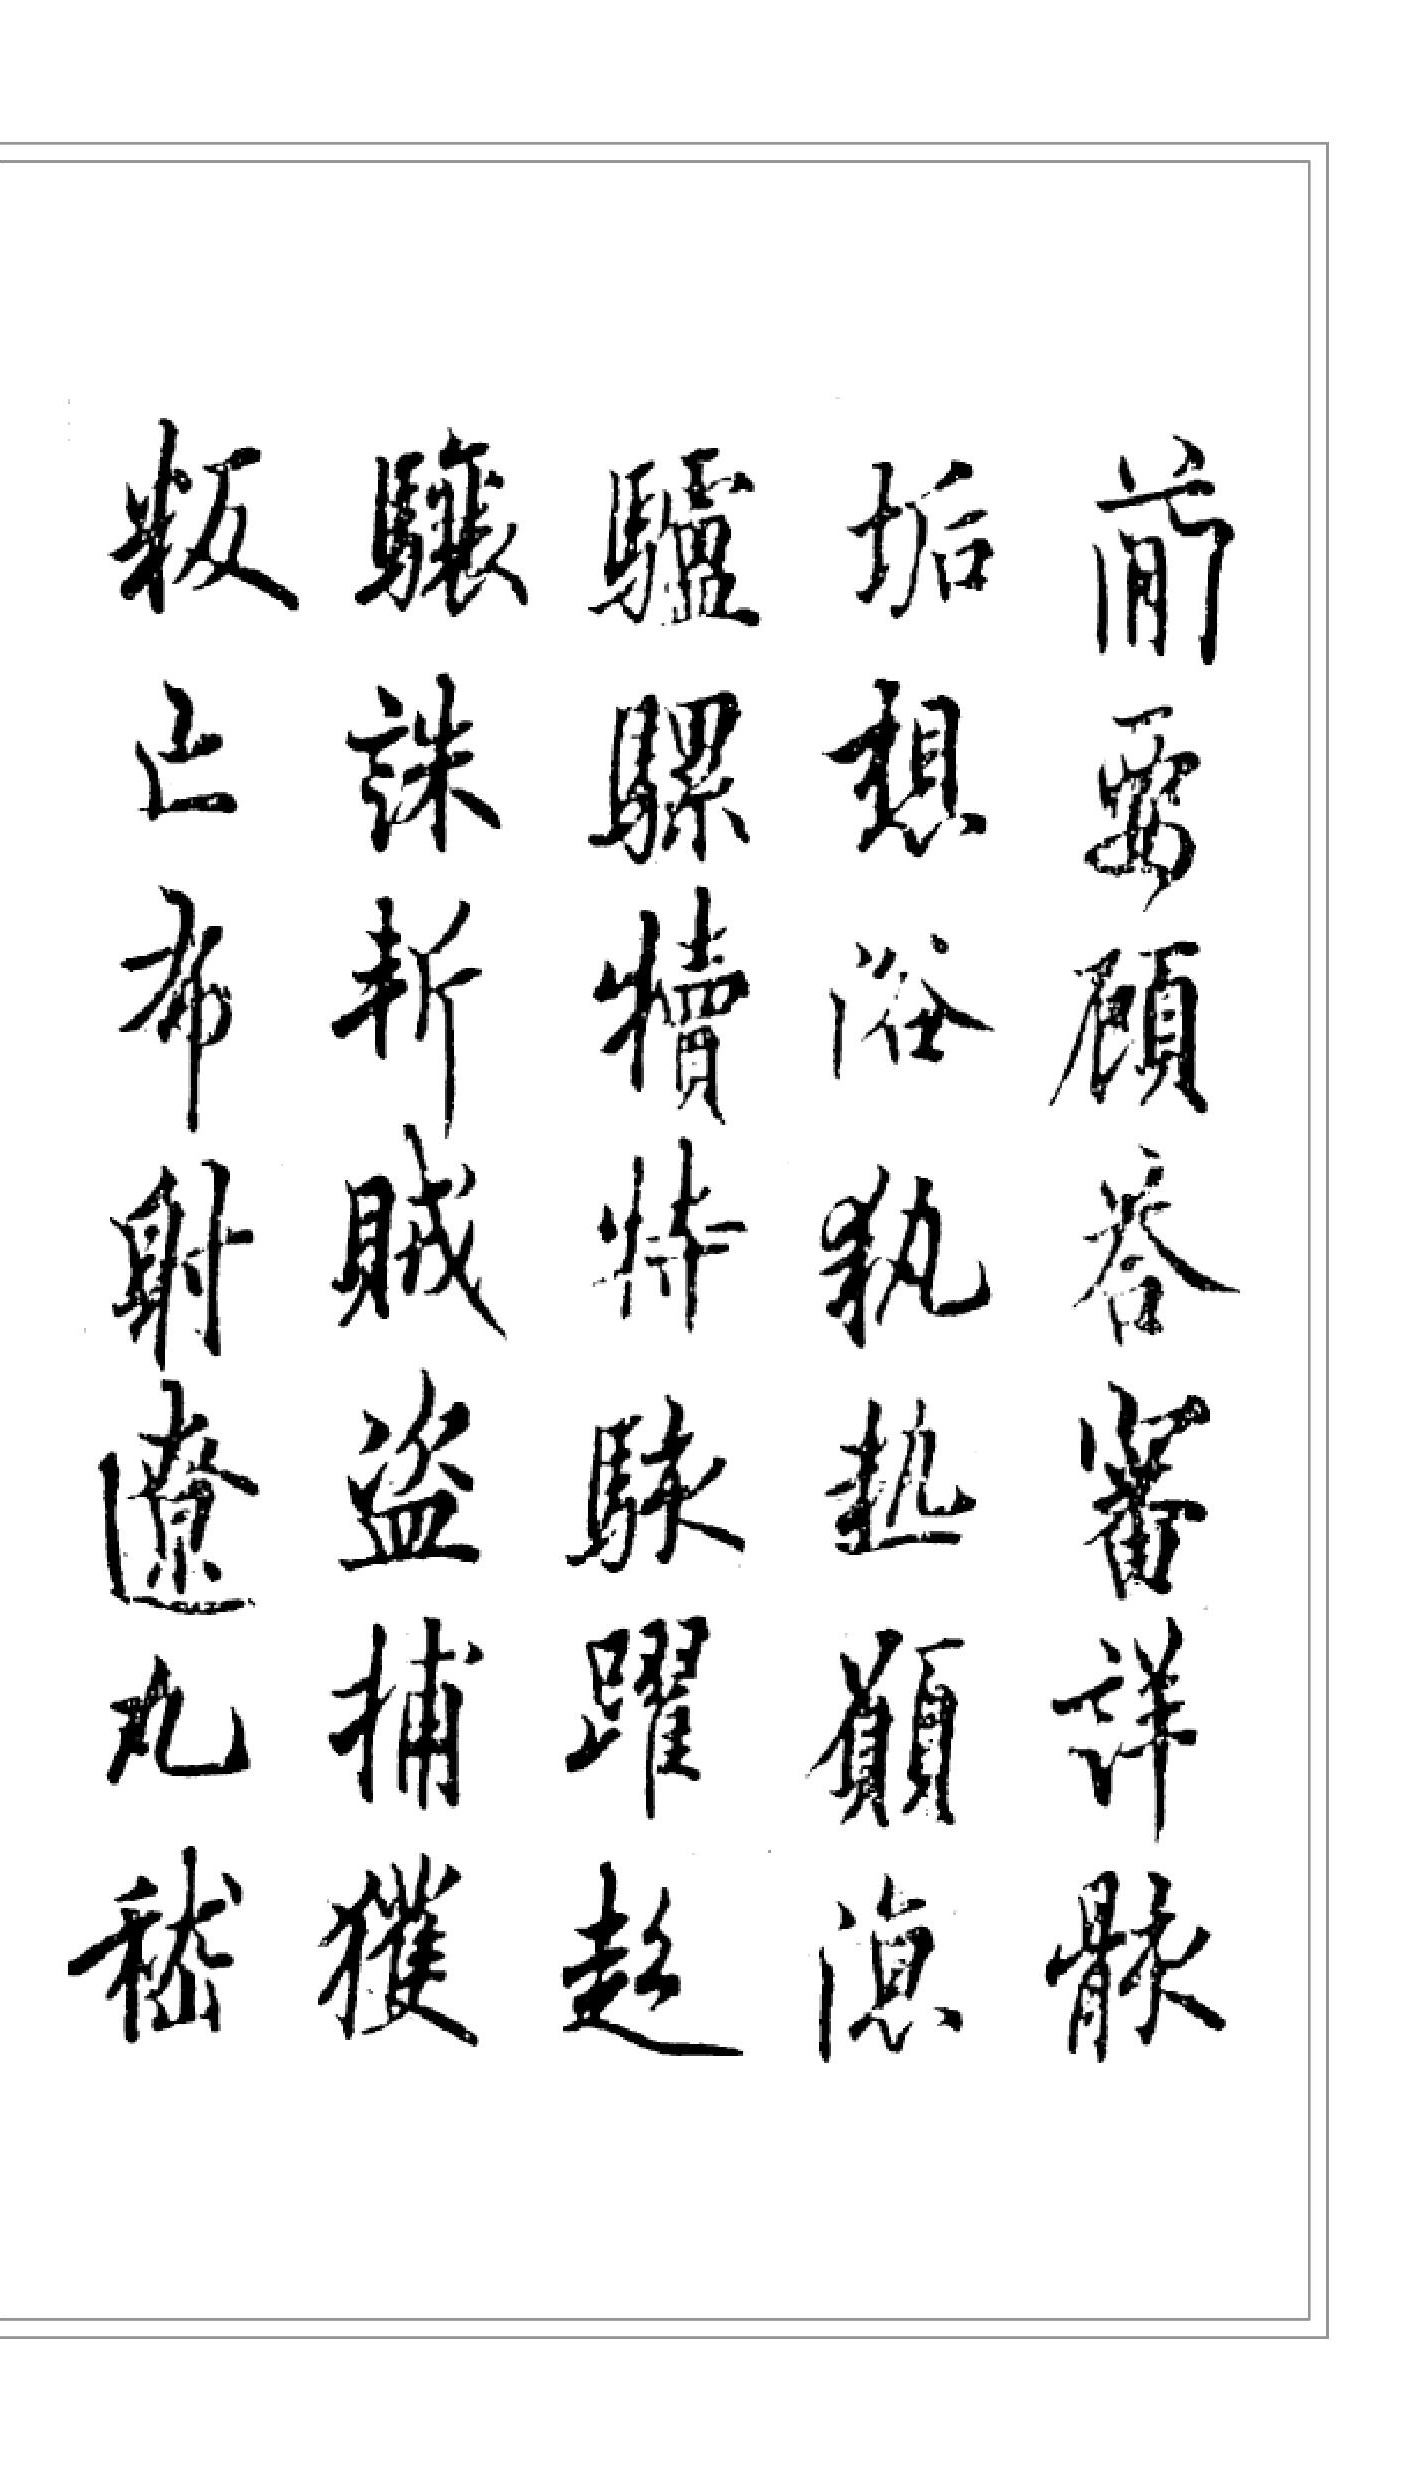 蕳要顧答審詳骸
垢想浴執熱願涼
驢騾犢特駭躍超
驤誅斬賊盜捕獲
叛亡布射遼丸嵇